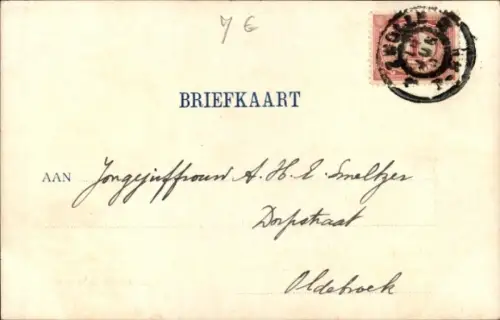 7 €
ZWOLLE
BRIEFKAART
AAN Jongejuffrouw A. H. E. Smeltzer
Dorpstraat
Oldebroek